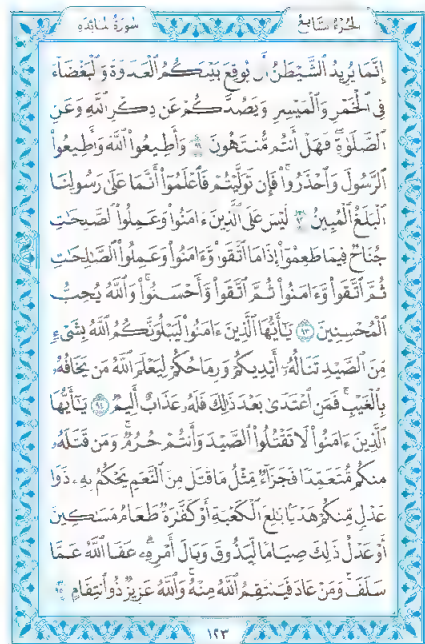 الجزء السابع
سورة المائدة
إِنَّمَا يُرِيدُ الشَّيْطَٰنُ أَن يُوقِعَ بَيْنَكُمُ الْعَدَٰوَةَ وَالْبَغْضَآءَ
فِي الْخَمْرِ وَالْمَيْسِرِ وَيَصُدَّكُمْ عَن ذِكْرِ اللَّهِ وَعَنِ
الصَّلَوٰةِ فَهَلْ أَنتُم مُّنتَهُونَ ٩١ وَأَطِيعُوا اللَّهَ وَأَطِيعُوا
الرَّسُولَ وَاحْذَرُوا فَإِن تَوَلَّيْتُمْ فَاعْلَمُوا أَنَّمَا عَلَىٰ رَسُولِنَا
الْبَلَٰغُ الْمُبِينُ ٩٢ لَيْسَ عَلَى الَّذِينَ ءَامَنُوا وَعَمِلُوا الصَّٰلِحَٰتِ
جُنَاحٌ فِيمَا طَعِمُوٓا إِذَا مَا اتَّقَوا وَّءَامَنُوا وَعَمِلُوا الصَّٰلِحَٰتِ
ثُمَّ اتَّقَوا وَّءَامَنُوا ثُمَّ اتَّقَوا وَّأَحْسَنُوا وَاللَّهُ يُحِبُّ
الْمُحْسِنِينَ ٩٣ يَٰٓأَيُّهَا الَّذِينَ ءَامَنُوا لَيَبْلُوَنَّكُمُ اللَّهُ بِشَىْءٍ
مِّنَ الصَّيْدِ تَنَالُهُٓ أَيْدِيكُمْ وَرِمَاحُكُمْ لِيَعْلَمَ اللَّهُ مَن يَخَافُهُ
بِالْغَيْبِ فَمَنِ اعْتَدَىٰ بَعْدَ ذَٰلِكَ فَلَهُ عَذَابٌ أَلِيمٌ ٩٤ يَٰٓأَيُّهَا
الَّذِينَ ءَامَنُوا لَا تَقْتُلُوا الصَّيْدَ وَأَنتُمْ حُرُمٌ وَمَن قَتَلَهُ
مِنكُم مُّتَعَمِّدًا فَجَزَآءٌ مِّثْلُ مَا قَتَلَ مِنَ النَّعَمِ يَحْكُمُ بِهِ ذَوَا
عَدْلٍ مِّنكُمْ هَدْيًا بَٰلِغَ الْكَعْبَةِ أَوْ كَفَّٰرَةٌ طَعَامُ مَسَٰكِينَ
أَوْ عَدْلُ ذَٰلِكَ صِيَامًا لِّيَذُوقَ وَبَالَ أَمْرِهِ عَفَا اللَّهُ عَمَّا
سَلَفَ وَمَنْ عَادَ فَيَنتَقِمُ اللَّهُ مِنْهُ وَاللَّهُ عَزِيزٌ ذُو انتِقَامٍ ٩٥
١٢٣